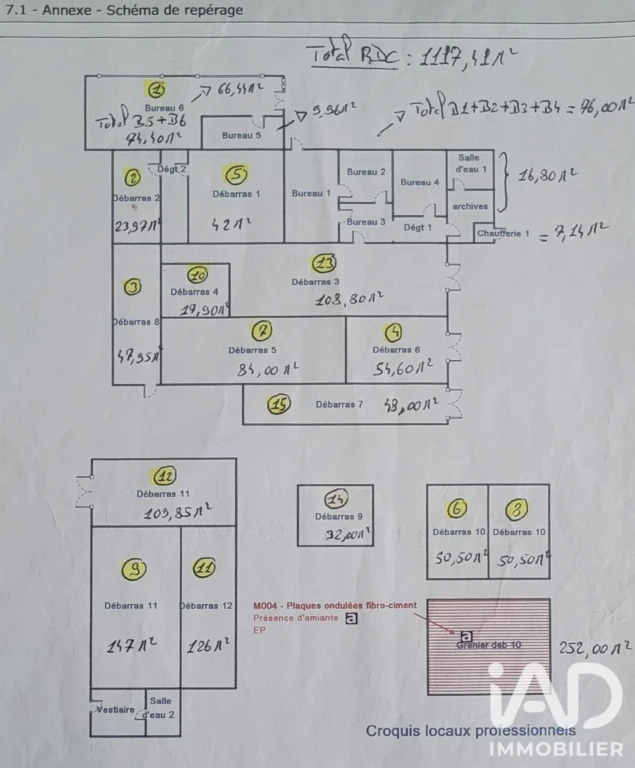 7.1 - Annexe - Schéma de repérage
Total RDC : 1117,41 m²
1
66,44 m²
Bureau 6
Total B5+B6
74,40 m²
9,96 m²
Total B1+B2+B3+B4 = 96,00 m²
Bureau 5
2
Dégt 2
5
Débarras 2
23,97 m²
Débarras 1
42 m²
Bureau 1
Bureau 2
Bureau 3
Bureau 4
Dégt 1
Salle
d'eau 1
archives
16,80 m²
Chaufferie 1
= 7,14 m²
3
Débarras 8
47,95 m²
10
Débarras 4
17,90 m²
13
Débarras 3
108,80 m²
7
Débarras 5
84,00 m²
4
Débarras 6
54,60 m²
15
Débarras 7
48,00 m²
12
Débarras 11
103,85 m²
14
Débarras 9
32,00 m²
6
Débarras 10
50,50 m²
8
Débarras 10
50,50 m²
9
Débarras 11
147 m²
11
Débarras 12
126 m²
M004 - Plaques ondulées fibro-ciment
Présence d'amiante a
EP
a
Grenier deb 10
252,00 m²
Vestiaire
Salle
d'eau 2
Croquis locaux professionnels
iAD
IMMOBILIER